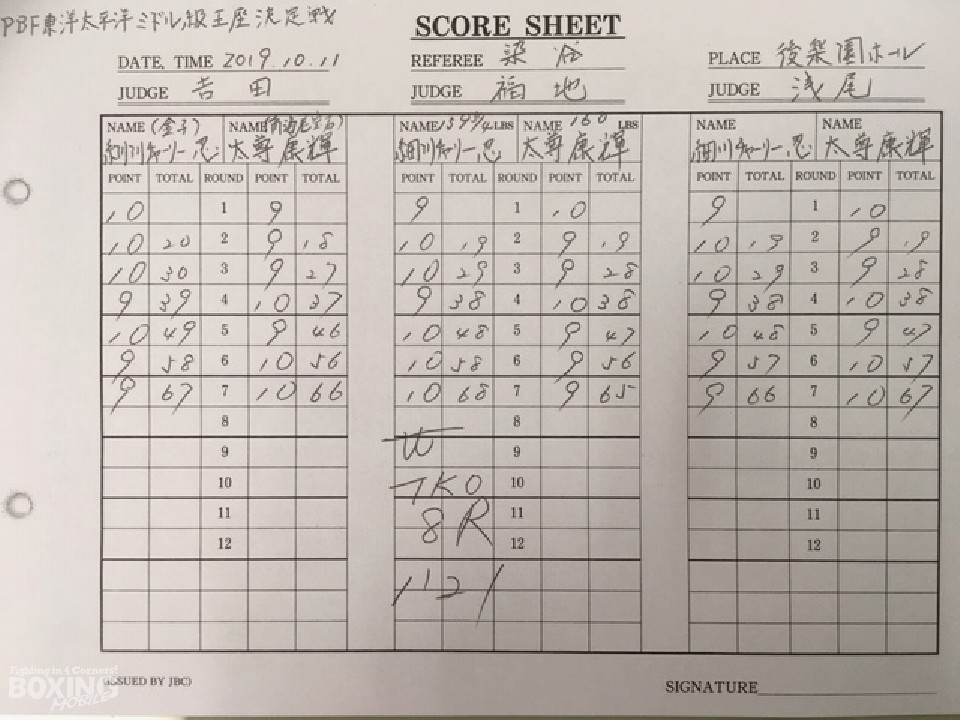 PBF東洋太平洋ミドル級王座決定戦
SCORE SHEET
DATE, TIME 2019.10.11 REFEREE 染谷 PLACE 後楽園ホール
JUDGE 吉田 JUDGE 福地 JUDGE 浅尾
NAME (金子) NAME NAME 159 3/4 LBS NAME 160 LBS NAME NAME
細川チャーリー忍 太尊康輝 細川チャーリー忍 太尊康輝 細川チャーリー忍 太尊康輝
POINT TOTAL ROUND POINT TOTAL POINT TOTAL ROUND POINT TOTAL POINT TOTAL ROUND POINT TOTAL
10 1 9 9 1 10 9 1 10
10 20 2 9 18 10 19 2 9 19 10 19 2 9 19
10 30 3 9 27 10 29 3 9 28 10 29 3 9 28
9 39 4 10 37 9 38 4 10 38 9 38 4 10 38
10 49 5 9 46 10 48 5 9 47 10 48 5 9 47
9 58 6 10 56 10 58 6 9 56 9 57 6 10 57
9 67 7 10 66 10 68 7 9 65 9 66 7 10 67
8 8 8
9 9 9
10 TKO 10 10
11 8R 11 11
12 12 12
1'12"
(ISSUED BY JBC)
SIGNATURE
Fighting in 4 Corners!
BOXING
MOBILE